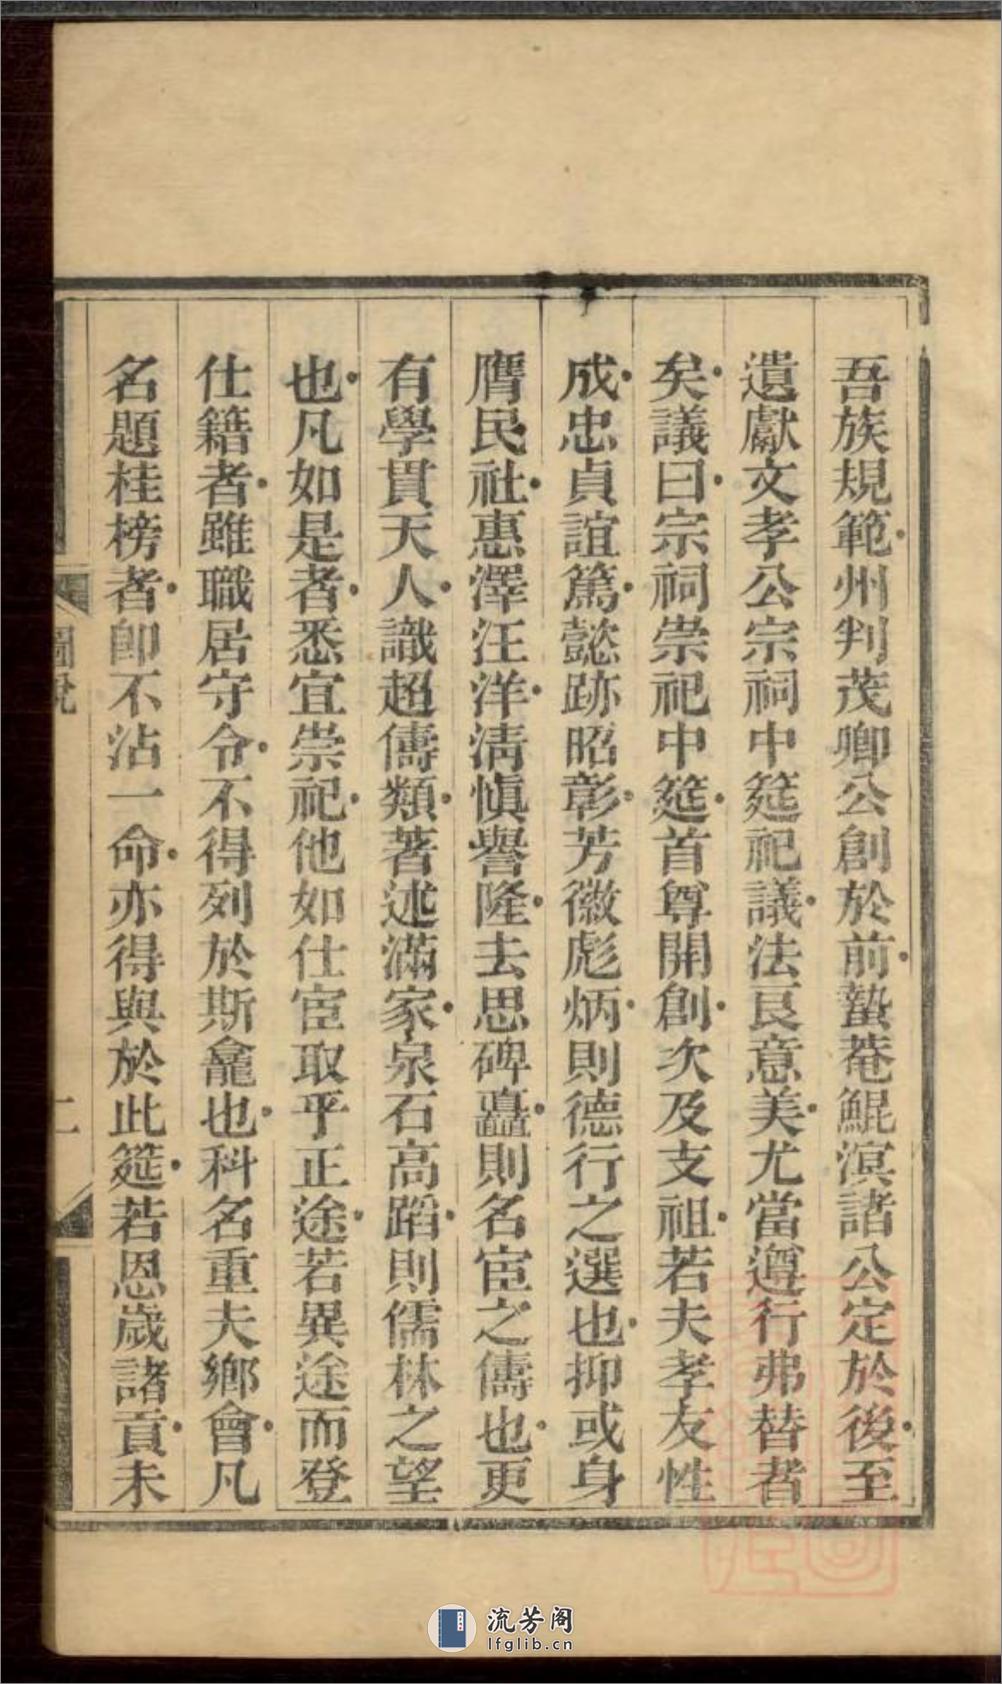 吾族規範州判茂卿公創於前蟄菴鯤溟諸公定於後至
遺獻文孝公宗祠中筵祀議法良意美尤當遵行弗替者
矣議曰宗祠崇祀中筵首尊開創次及支祖若夫孝友性
成忠貞誼篤懿跡昭彰芳徽彪炳則德行之選也抑或身
膺民社惠澤汪洋清愼譽隆去思碑矗則名宦之儔也更
有學貫天人識超儔類著述滿家泉石高蹈則儒林之望
也凡如是者悉宜崇祀他如仕宦取乎正途若異途而登
仕籍者雖職居守令不得列於斯龕也科名重夫鄉會凡
名題桂榜者卽不沾一命亦得與於此筵若恩歲諸貢未
圖說
二
流芳阁
lfglib.cn